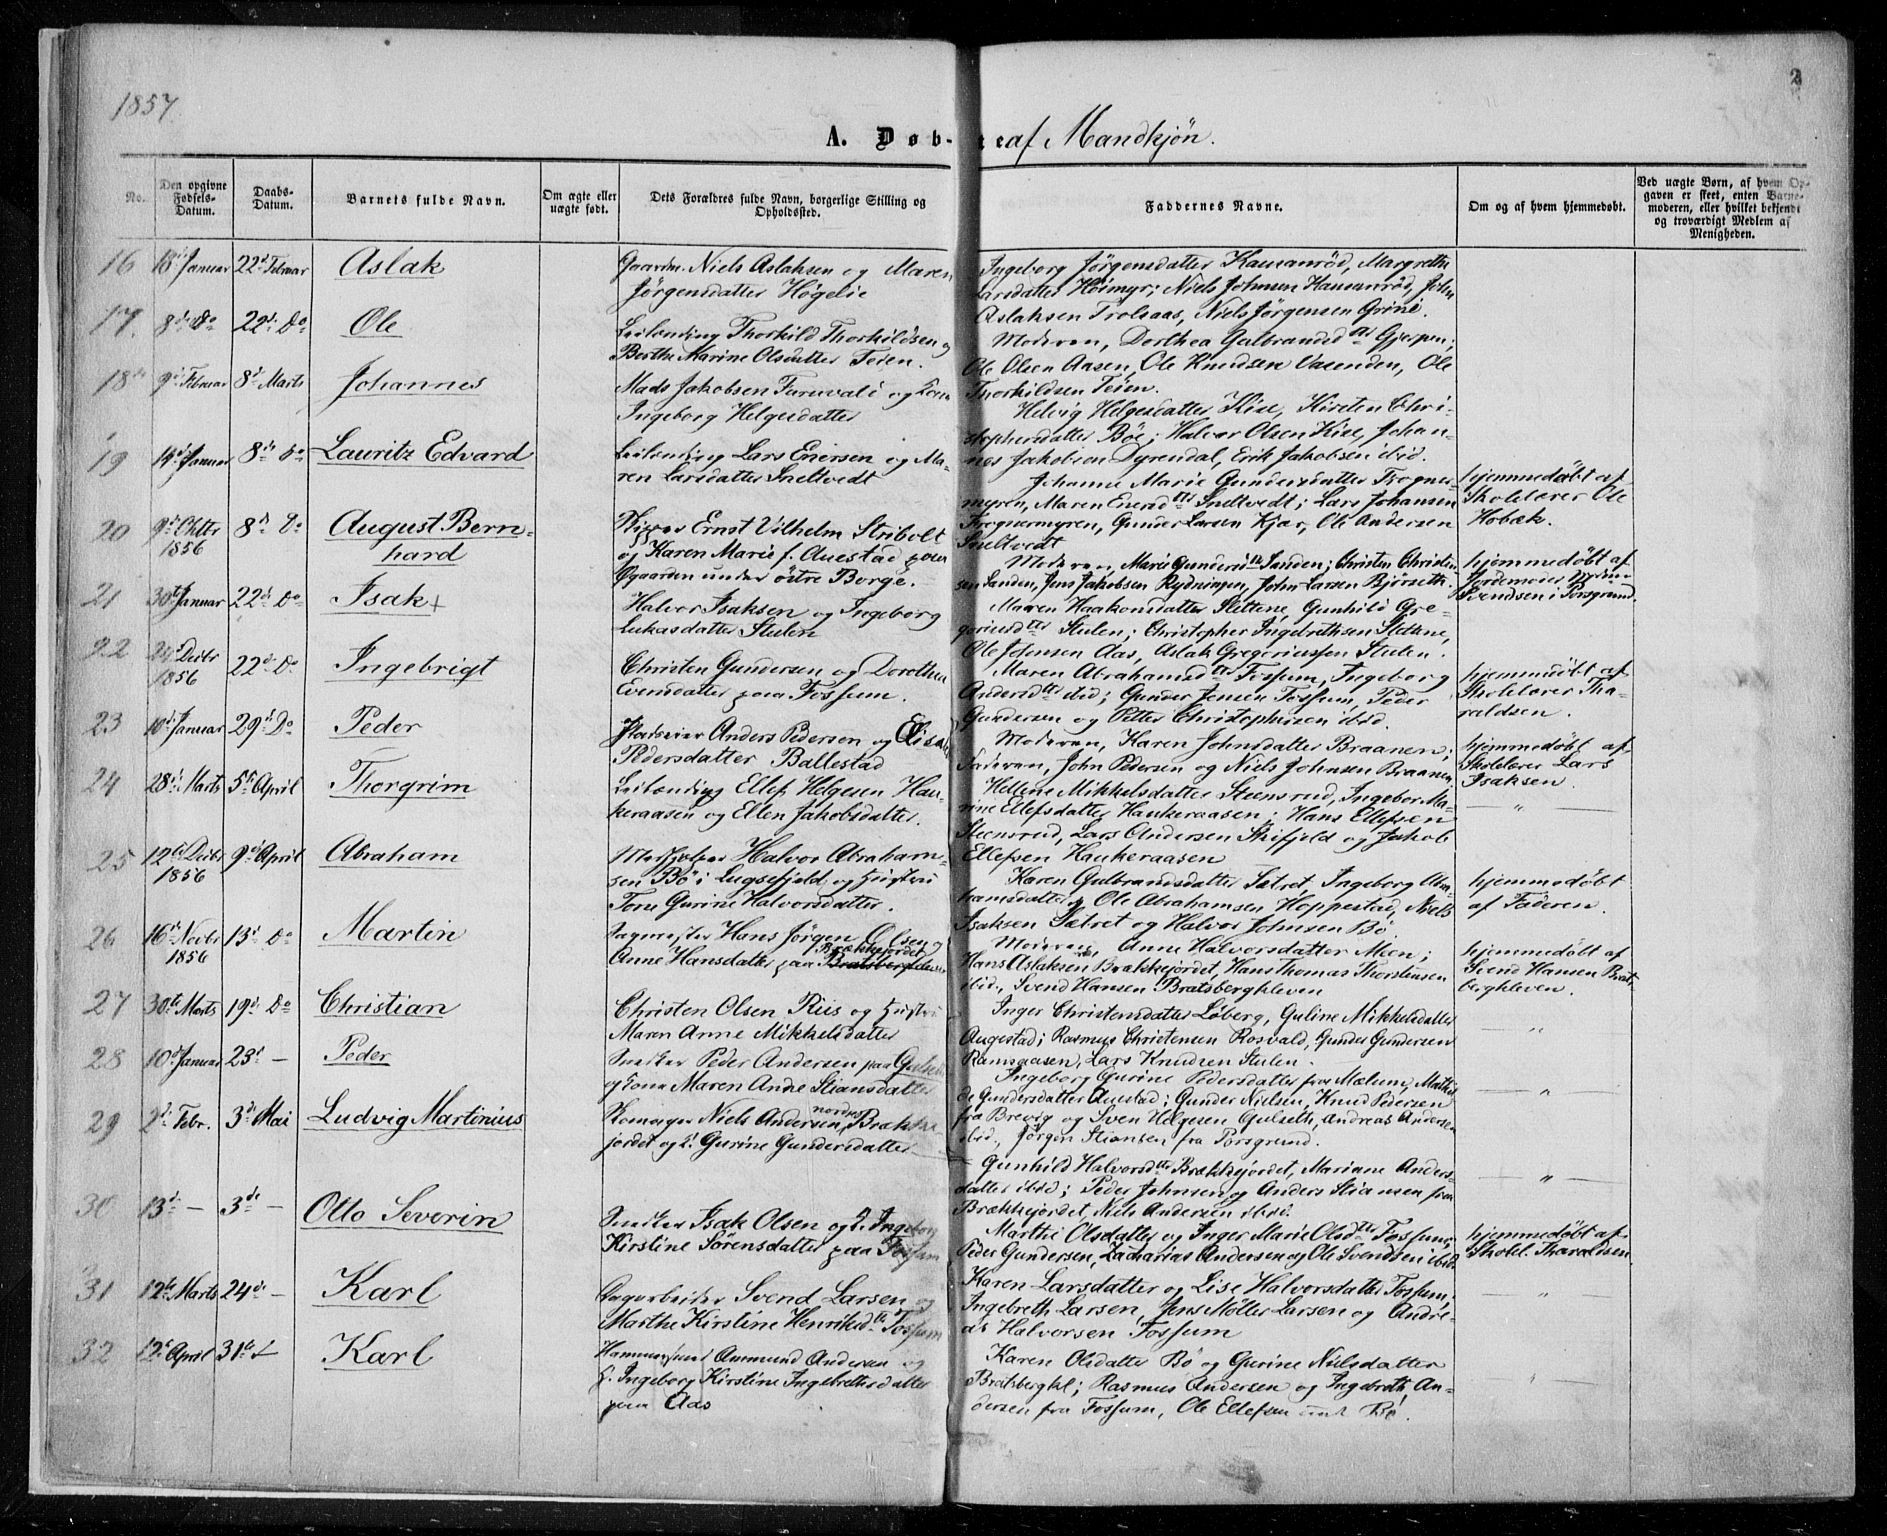 1857.
2
A. Døb- e af Mandkjøn.
No.
Den opgivne Fødsels-Datum.
Daabs-Datum.
Barnets fulde Navn.
Om ægte eller uægte født.
Dets Forældres fulde Navn, borgerlige Stilling og Opholdssted.
Faddernes Navne.
Om og af hvem hjemmedøbt.
Ved uægte Børn, af hvem Opgaven er skeet, enten Barnemoderen, eller hvilket bekjendt og troværdigt Medlem af Menigheden.
16 18de Januar 22de Februar Aslak
Gaardm. Niels Aslaksen og Maren
Jörgensdatter Högelie
Ingeborg Jörgensdatter Kamanröd, Margrethe
Larsdatter Höimyr; Niels Johnsen Kamanröd, John
Aslaksen Trolsaas, Niels Jörgensen Grine.
17. 8de Do 22de Do Ole
Leilending Thorkild Thorkildsen og
Berthe Marine Olsdatter Teien.
Moderen, Dorthea Gulbrandsdtr Gjerpen;
Ole Olsen Aasen, Ole Knudsen Vasenden, Ole
Thorkildsen Teien.
18 9de Februar 8de Marts Johannes
Mads Jakobsen Faruvald og Kone
Ingeborg Helgesdatter
Helvig Helgesdatter Kise, Kirsten Chri-
stophersdatter Böe; Halvor Olsen Kise, Johan-
nes Jakobsen Dyrendal, Erik Jakobsen ibid.
19 14de Januar 8de Do Lauritz Edvard
Leilending Lars Enersen og Ma-
ren Larsdatter Sneltvedt
Johanne Marie Gundersdatter Frogner-
myren, Maren Enersdtr Sneltvedt; Lars Johansen
Frognermyren, Gunder Larsen Kjær, Ole Andersen
Sneltvedt
hjemmedøbt af
Skolelærer Ole
Hobæk.
20 9de Okttr 1856 8de Do August Bern-
hard
Ernst Vilhelm Stribolt
og Karen Marie f. Auestad paa
Øgaarden under östre Borge.
Moderen, Marie Gundersdtr Sanden; Christen Christen-
sen Sanden, Jens Jakobsen Rydningen, John Larsen Bjorseth.
hjemmedøbt af
Jordemoder
Svendsen i Porsgrund.
21 30te Januar 22de Do Isak +
Halvor Isaksen og Ingeborg
Lukasdatter Stulen
Maren Haakonsdatter Slettene, Gunhild Gre-
goriusdtr Stulen; Christopher Ingebrethsen Slettene,
Ole Johnsen Aas, Aslak Gregoriussen Stulen.
22 24 Decbr 1856 22de Do Ingebrigt
Christen Gundersen og Dorothea
Evensdatter paa Fossum.
Maren Abrahamsdtr Fossum, Ingeborg
Andersdtr ibid; Gunder Jensen Fossum, Peder
Gundersen og Petter Christophersen ibid.
hjemmedøbt af
Skolelærer Tha-
raldsen.
23 10de Januar 29de Do Peder
Pladseier Anders Pedersen og Elisa
Pedersdatter Ballestad
Moderen, Karen Johnsdatter Braanen;
Faderen, John Pedersen og Niels Johnsen Braanen
hjemmedøbt af
Skolelærer Lars
Isaksen.
24 28de Marts 5te April Thorgrim
Leilending Ellef Helgesen Hau-
keraasen og Ellen Jakobsdatter.
Hellene Mikkelsdatter Steensrud, Ingebor Ma-
rine Ellefsdatter Haukeraasen; Hans Ellefsen
Steensrud, Lars Andersen Skifjeld og Jakob
Ellefsen Haukeraasen
— " —
25 12te Decbr 1856 9de April Abraham
Halvor Abraham-
sen Bö i Luxefjeld og Hustru
Tone Gurine Halvorsdatter.
Karen Gulbrandsdatter Sætret, Ingeborg Abra-
hamsdatter, Ole Abrahamsen Hoppestad, Niels
Isaksen Sætret og Halvor Johnsen Bö.
hjemmedøbt
af Faderen.
26 16de Novbr 1856 13de Do Martin
Sagmester Hans Jörgen Olsen og
Anne Hansdatter paa Brækkejordet Bratsbergkleven
Moderen, Anne Halvorsdatter Meen;
Hans Aslaksen Brækkejordet, Hans Thomas Thorstensen
ibid., Svend Hansen Bratsbergkleven
hjemmedøbt af
Svend Hansen Brats-
bergkleven.
27 30te Marts 19de Do Christian
Christen Olsen Riis og Hustru
Maren Anne Mikkelsdatter
Inger Christensdatter Löberg, Guline Mikkelsdatter
Augestad; Rasmus Christensen Rosvald, Gunder Gundersen
Ramsaasen, Lars Knudsen Stulen.
"
28 10de Januar 23de — Peder
Snedker Peder Andersen paa Gulset
og Kone Maren Anne Stiansdatter
Ingeborg Gurine Pedersdatter fra Mælum, Mathil-
de Gundersdatter Auestad; Gunder Nielsen, Knud Pedersen
fra Brevig og Sven Helgesen Gulseth, Andreas Andersen
ibid., Jörgen Stiansen fra Porsgrund.
— " —
29 2de Febr. 3de Mai Ludvig Martinius
Komager Niels Andersen, nordre Brække-
jordet og h. Gurine Gundersdatter
Gunhild Halvorsdtr Brækkejordet, Mariane Anders-
datter ibid; Peder Johnsen og Anders Stiansen fra
Brækkejordet, Niels Andersen ibid.
— " —
30 13de — 3de — Otto Severin
Snedker Isak Olsen og h. Ingeborg
Kirstine Sörensdatter paa Fossum
Marthe Olsdatter og Inger Marie Olsdtr Fossum;
Peder Gundersen, Zacharias Andersen og Ole Svendsen ibid.
hjemmedøbt af
Skolel. Tharaldsen.
31 12te Marts 24de — Karl
Sagarbeider Svend Larsen og
Marthe Kirstine Henriksdtr Fossum
Karen Larsdatter og Lise Halvorsdatter Fossum;
Ingebreth Larsen, Jens Möller Larsen og Andre-
as Halvorsen Fossum
— " —
32 12te April 31te Karl
Hammersmed Ammund Andersen og
h. Ingeborg Kirstine Ingebrethsdatter
paa Aas
Karen Olsdatter Bö og Gurine Nielsdatter
Bratsbergkl; Rasmus Andersen og Ingebreth An-
dersen fra Fossum, Ole Ellefsen Bö.
"